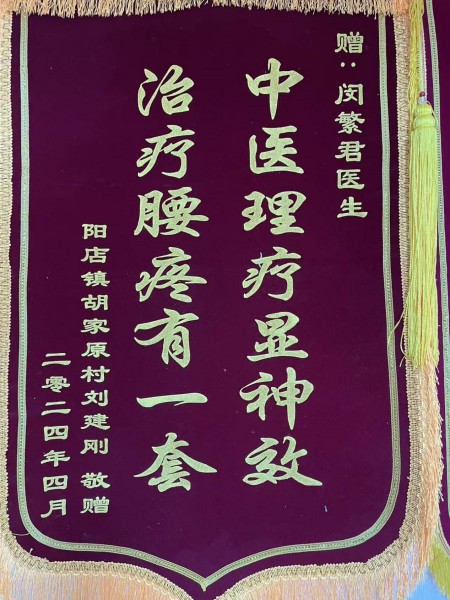 赠：闵繁君医生
中医理疗显神效
治疗腰疼有一套
阳店镇胡家原村刘建刚 敬赠
二零二四年四月